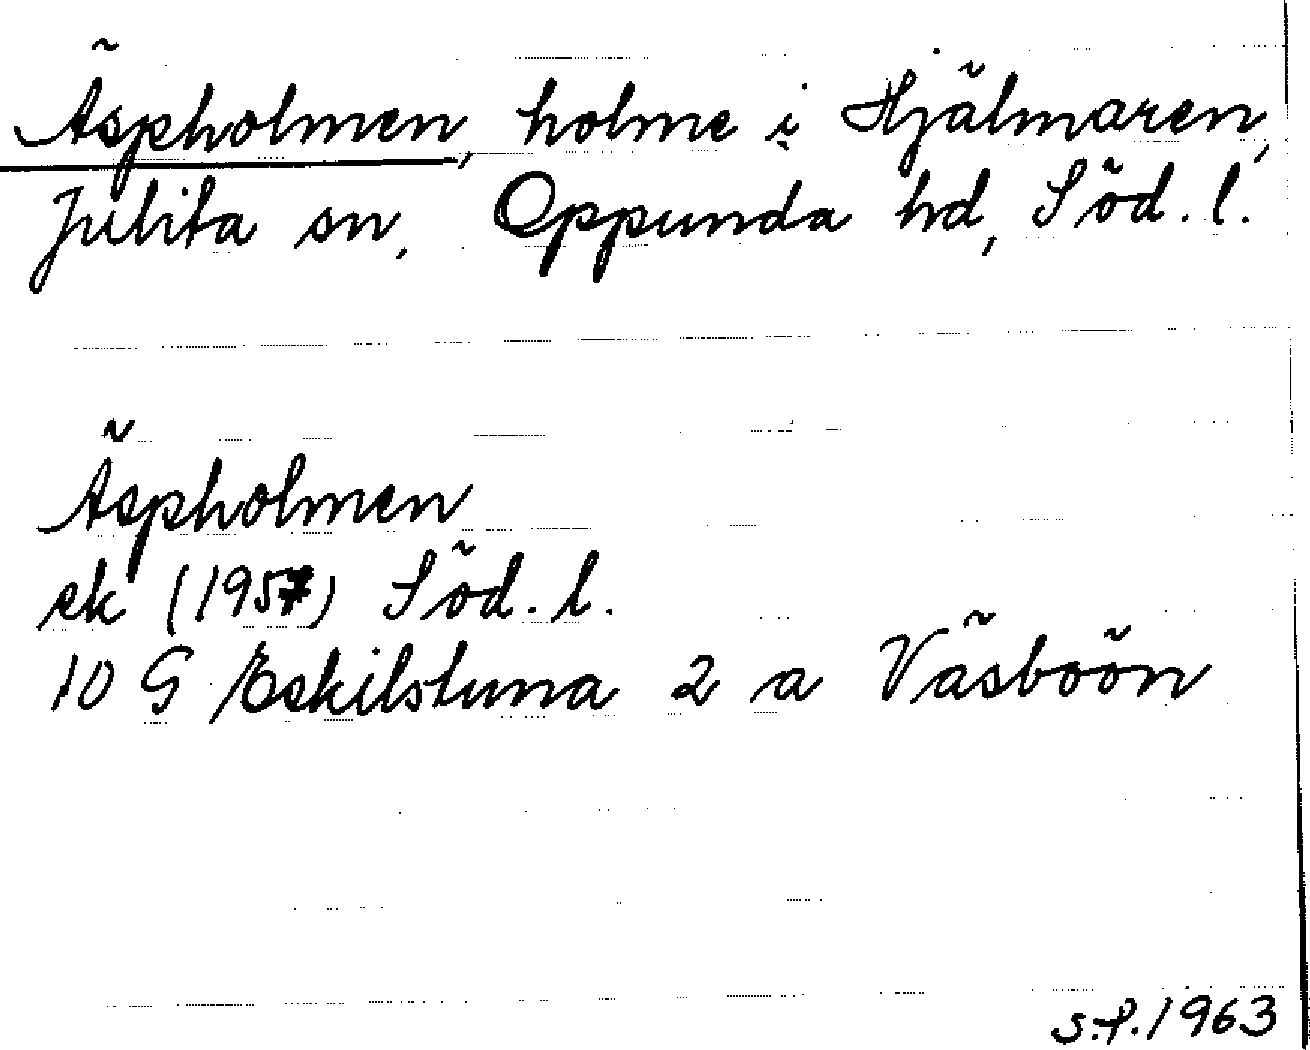 Äspholmen, holme i Hjälmaren,
Julita sn, Oppunda hd, Söd. l.
Äspholmen
ek (1957) Söd. l.
10 G Eskilstuna 2 a Väsboön
S.P. 1963